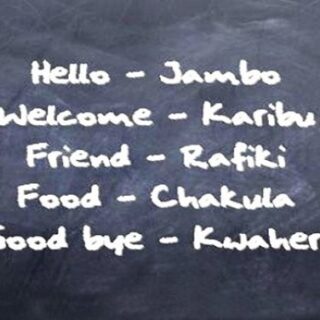 Hello - Jambo
Welcome - Karibu
Friend - Rafiki
Food - Chakula
Good bye - Kwaher